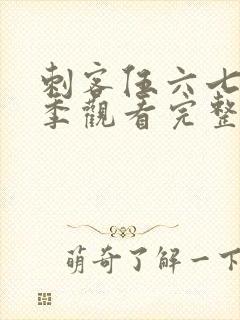 刺客伍六七
季觀看完整
萌奇了解一下